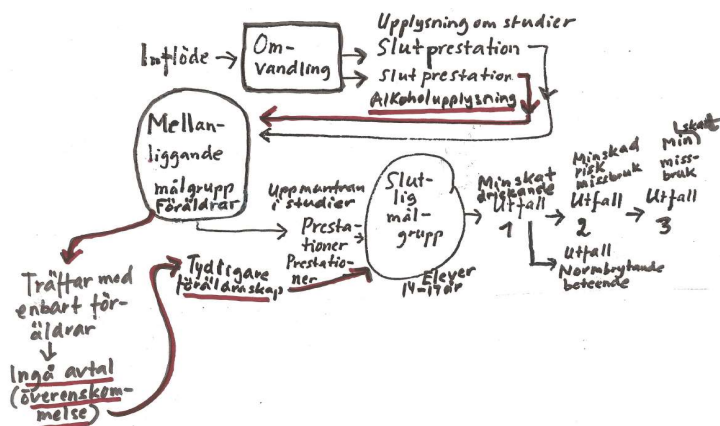 Upplysning om studier
Inflöde
Om-
vandling
Slutprestation
Slutprestation
Alkoholupplysning
Mellan-
liggande
målgrupp
Föräldrar
Uppmuntran
i studier
Presta-
tioner
Prestatio-
ner
Slut-
lig
mål-
grupp
Elever
14-17 år
Minskat
drickande
Utfall
1
Minskad
risk
missbruk
Utfall
2
Min
miss-
bruk
Utfall
3
Utfall
Normbrytande
beteende
Träffar med
enbart för-
äldrar
Ingå avtal
(överenskom-
melse)
Tydligare
föräldraskap